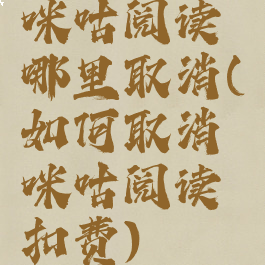 咪咕阅读
哪里取消(
如何取消
咪咕阅读
扣费)